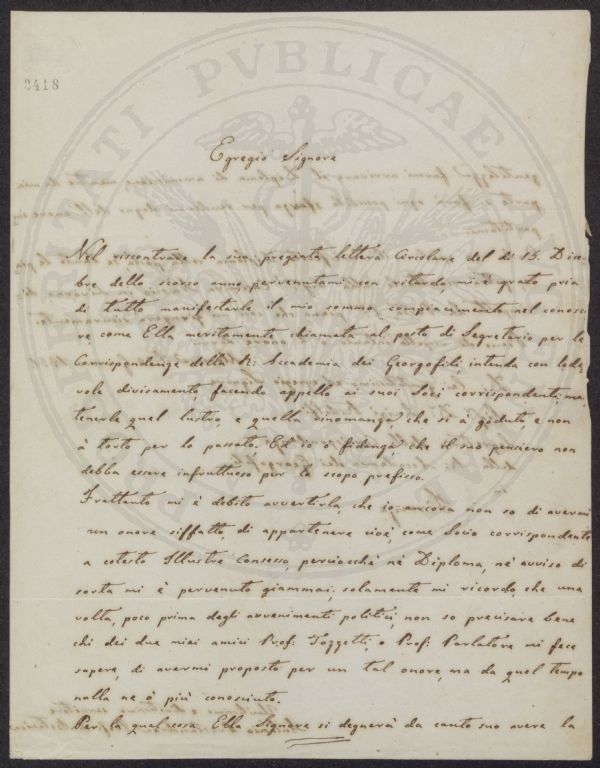 2418
Egregio Signore
Nel riscontrare la sua pregiata lettera Circolare del dì 15. Dicem
bre dello scorso anno, pervenutami con ritardo, mi è grato pria
di tutto manifestarle il mio sommo compiacimento nel conosce
re come Ella meritamente chiamata al posto di Segretario per le
Corrispondenze della R: Accademia dei Georgofili intenda con lode
vole divisamento, facendo appello ai suoi Soci corrispondenti, man
tenerle quel lustro, e quella rinomanza, che si à goduta, e non
à torto per lo passato. Ed io ò fidanza, che il suo pensiero non
debba essere infruttuoso per lo scopo prefisso.
Frattanto mi è debito avvertirla, che io ancora non so di avermi
un onore siffatto, di appartenere cioè come Socio corrispondente
a cotesto Illustre Consesso, perciocchè nè Diploma, nè avviso di
sorta mi è pervenuto giammai, solamente mi ricordo, che una
volta, poco prima degli avvenimenti politici, non so precisare bene
chi dei due miei amici Prof: Tozzetti, o Prof: Parlatore mi fece
sapere, di avermi proposto per un tal onore, ma da quel tempo
nulla ne ò più conosciuto.
Per la qual cosa Ella Signore si degnerà da canto suo avere la